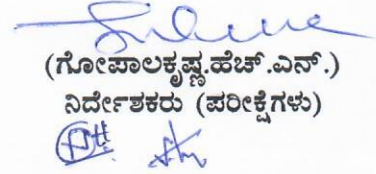 (ಗೋಪಾಲಕೃಷ್ಣ.ಹೆಚ್.ಎನ್.)
ನಿರ್ದೇಶಕರು (ಪರೀಕ್ಷೆಗಳು)